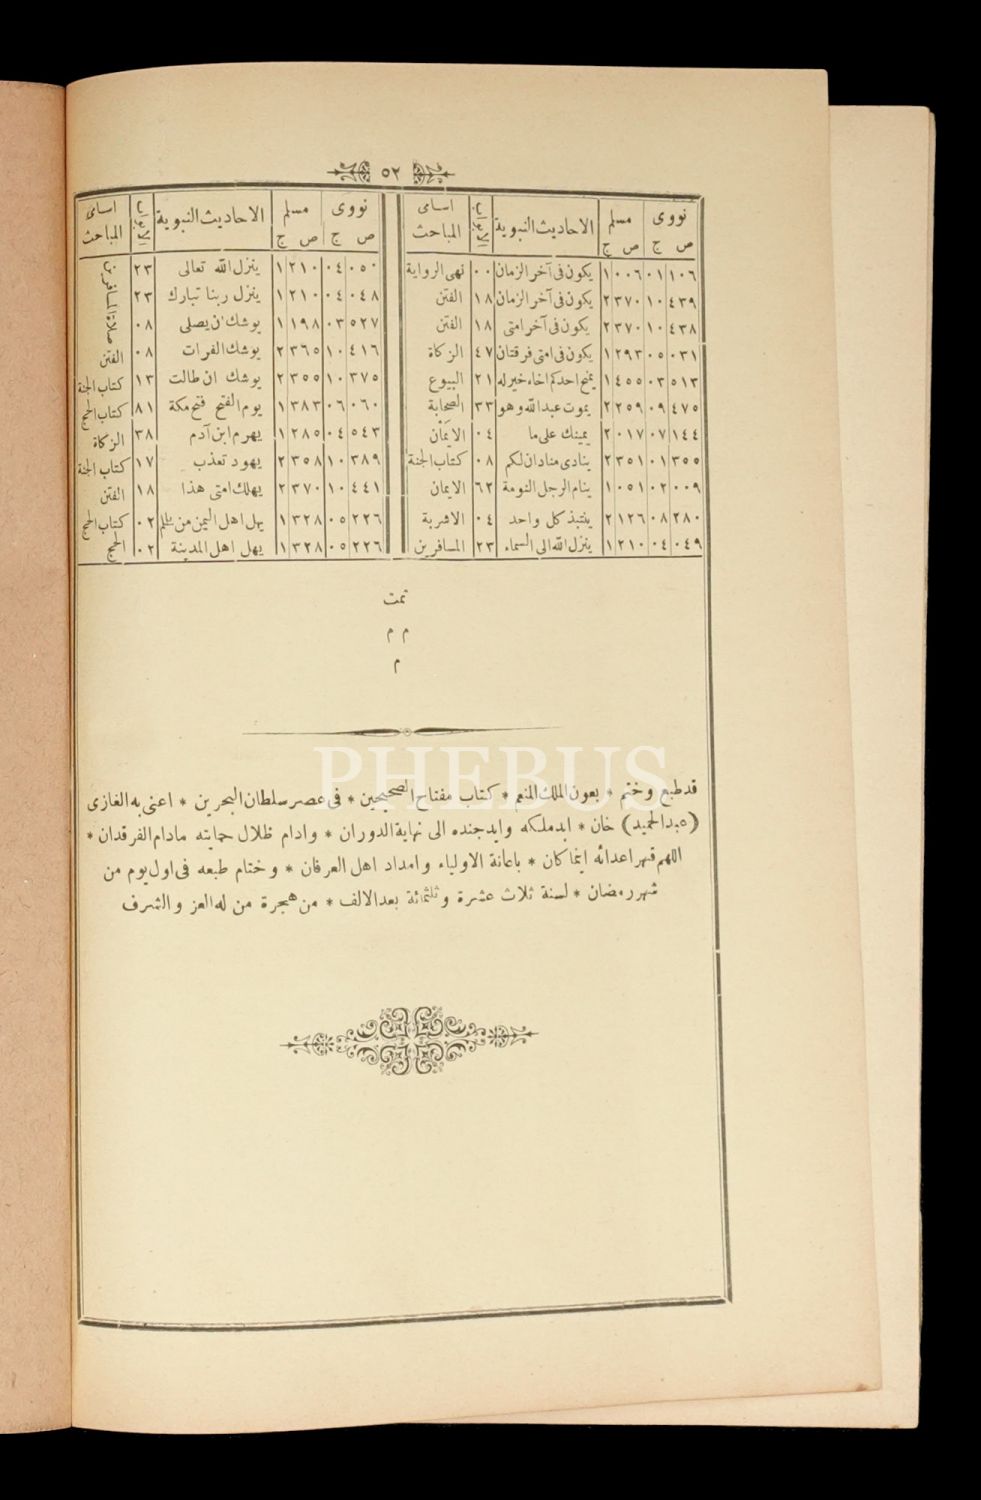 ٥٢
نووى مسلم الاحاديث النبوية الابواب اسامى المباحث
ص ج ص ج
١٠٦ ٠١ ٠٠٦ ١ يكون فى آخر الزمان ٠٠ نهى الرواية
٤٣٩ ١٠ ٣٧٠ ٢ يكون فى آخر الزمان ١٨ الفتن
٤٣٨ ١٠ ٣٧٠ ٢ يكون فى آخر امتى ١٨ الفتن
٠٣١ ٠٥ ٢٩٣ ١ يكون فى امتى فرقتان ٤٧ الزكاة
٥١٣ ٠٣ ٤٥٥ ١ يمنح احدكم اخاه خير له ٢١ البيوع
٤٧٥ ٠٩ ٢٥٩ ٢ يموت عبد الله وهو ٣٣ الصحابة
١٤٤ ٠٧ ٠١٧ ٢ يمينك على ما ٠٤ الايمان
٣٥٥ ٠١ ٣٥١ ٢ ينادى منادان لكم ٠٨ كتاب الجنة
٠٠٩ ٠٢ ٠٥١ ١ ينام الرجل النومة ٦٢ الايمان
٢٨٠ ٠٨ ١٢٦ ٢ ينتبذ كل واحد ٠٤ الاشربة
٠٤٩ ٠٤ ٢١٠ ١ ينزل الله الى السماء ٢٣ المسافرين
نووى مسلم الاحاديث النبوية الابواب اسامى المباحث
ص ج ص ج
٠٥٠ ٠٤ ٢١٠ ١ ينزل الله تعالى ٢٣ صلاة المسافرين
٠٤٨ ٠٤ ٢١٠ ١ ينزل ربنا تبارك ٢٣
٥٢٧ ٠٣ ١٩٨ ١ يوشك ان يصلى ٠٨
٤١٦ ١٠ ٣٦٥ ٢ يوشك الفرات ٠٨ الفتن
٣٧٥ ١٠ ٣٥٥ ٢ يوشك ان طالت ١٣ كتاب الجنة
٠٦٠ ٠٦ ٣٨٣ ١ يوم الفتح فتح مكة ٨١ كتاب الحج
٥٤٣ ٠٤ ٢٨٥ ١ يهرم ابن آدم ٣٨ الزكاة
٣٨٩ ١٠ ٣٥٨ ٢ يهود تعذب ١٧ كتاب الجنة
٤٤١ ١٠ ٣٧٠ ٢ يهلك امتى هذا ١٨ الفتن
٢٢٦ ٠٥ ٣٢٨ ١ يهل اهل اليمن من يلملم ٠٢ كتاب الحج
٢٢٦ ٠٥ ٣٢٨ ١ يهل اهل المدينة ٠٢ الحج
تمت
م م
م
PHEBUS
قد طبع وختم * بعون الملك المنعم * كتاب مفتاح الصحيحين * فى عصر سلطان البحرين * اعنى به الغازى
(عبد الحميد) خان * ايد ملكه وايد جنده الى نهاية الدوران * وادام ظلال حمايته مادام الفرقدان *
اللهم قهر اعدائه اينما كان * باعانة الاولياء وامداد اهل العرفان * وختام طبعه فى اول يوم من
شهر رمضان * لسنة ثلاث عشرة وثلثمائة بعد الالف * من هجرة من له العز والشرف